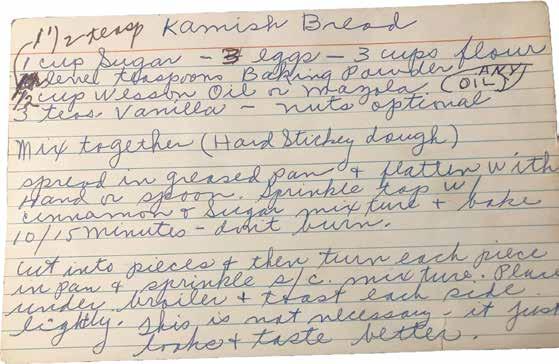 1 1/2 teasp Kamish Bread
1 cup Sugar - 3 eggs - 3 cups flour
level teaspoons Baking Powder
1/2 cup Wesson Oil or Mazola. (ANY OIL)
3 teas Vanilla - nuts optional
Mix together (Hard Stickey dough)
spread in greased pan & flatten with
Hand or spoon. Sprinkle top w/
cinnamon & Sugar mixture & bake
10/15 minutes - don't burn.
Cut into pieces & then turn each piece
in pan & sprinkle s/c. mixture. Place
under broiler & toast each side
lightly. This is not necessary - it just
looks & taste better.